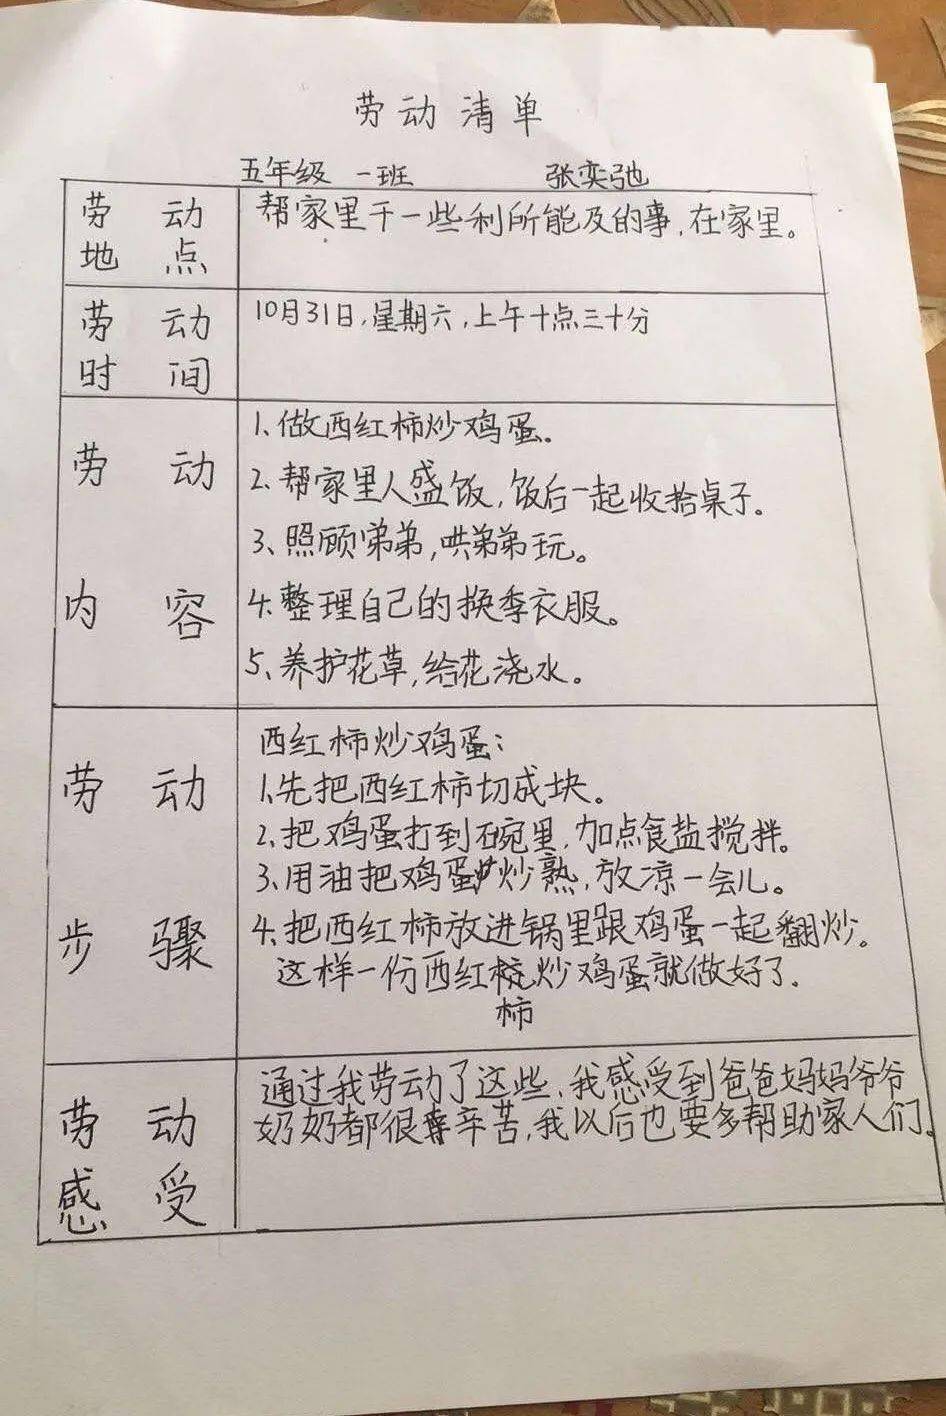 劳动清单
五年级 一班 张奕弛
劳动
地点
帮家里干一些利所能及的事,在家里。
劳动
时间
10月31日,星期六,上午十点三十分
劳动
内容
1、做西红柿炒鸡蛋。
2、帮家里人盛饭,饭后一起收拾桌子。
3、照顾弟弟,哄弟弟玩。
4、整理自己的换季衣服。
5、养护花草,给花浇水。
劳动
步骤
西红柿炒鸡蛋:
1、先把西红柿切成块。
2、把鸡蛋打到碗里,加点食盐搅拌。
3、用油把鸡蛋炒熟,放凉一会儿。
4、把西红柿放进锅里跟鸡蛋一起翻炒。
这样一份西红柿炒鸡蛋就做好了.
劳动
感受
通过我劳动了这些,我感受到爸爸妈妈爷爷
奶奶都很辛苦,我以后也要多帮助家人们。